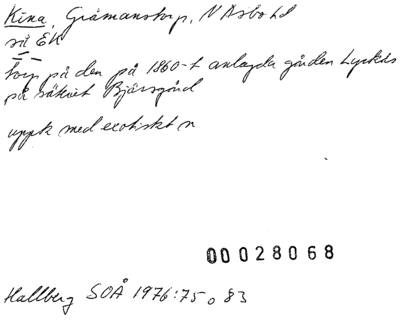 Kina, Gråmanstorp, N Åsbo hd
sit EK
torp på den på 1860-t anlagda gården Lyckås
på säteriet Bjärsgård
uppk med exotiskt n
00028068
Hallberg SOÅ 1976:75 o 83